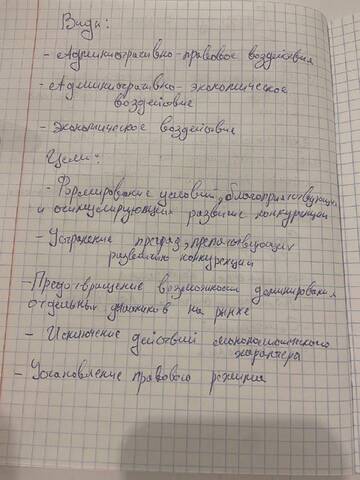 Виды:
- Административно-правовое воздействия
- Административно-экономическое
воздействие
- Экономическое воздействие
Цели:
- Формирование условий, благоприятствующих
и стимулирующих развитие конкуренции
- Устранение преград, препятствующих
развитию конкуренции
- Предотвращение возможности доминирования
отдельных участников на рынке
- Исключение действий монополистического
характера
- Установление правового режима